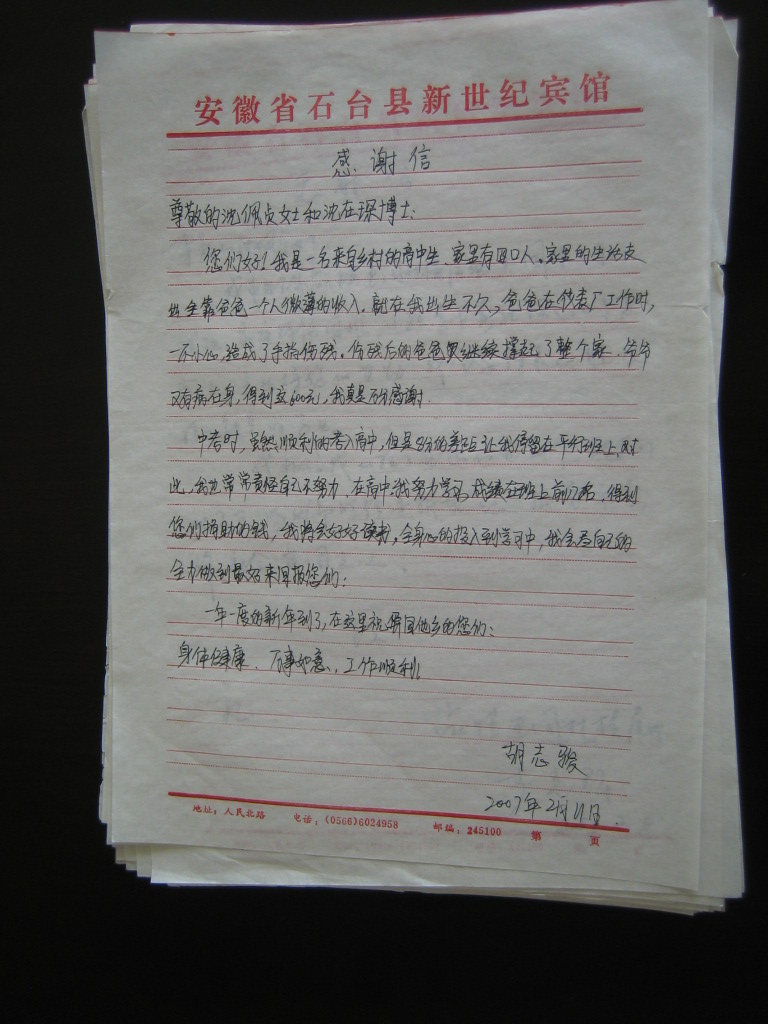 安徽省石台县新世纪宾馆
感谢信
尊敬的沈佩贞女士和沈在琛博士:
您们好!我是一名来自乡村的高中生、家里有四口人。家里的生活支
出全靠爸爸一个人微薄的收入. 就在我出生不久,爸爸在 厂工作时,
一不小心,造成了手指伤残。伤残后的爸爸 继续撑起了整个家. 爷爷
又有病在身,得到这600元,我真是万分感谢.
中考时,虽然顺利的考入高中,但是8分的差距让我停留在平行班上,对
此,我也常常责怪自己不努力. 在高中我努力学习,成绩在班上前 名,得到
您们捐助的钱,我将会好好读书,全身心的投入到学习中,我会尽自己的
全力做到最好来回报您们:
一年一度的新年到了,在这里祝 他乡的您们:
身体健康、万事如意、工作顺利.
胡志骏
2007年2月 日.
地址:人民北路 电话:(0566)6024958 邮编:245100 第 页